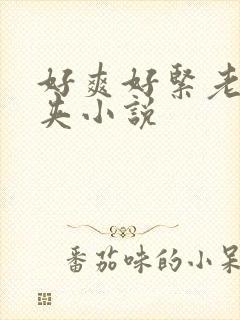 好爽好紧老
央小说
番茄味的小呆